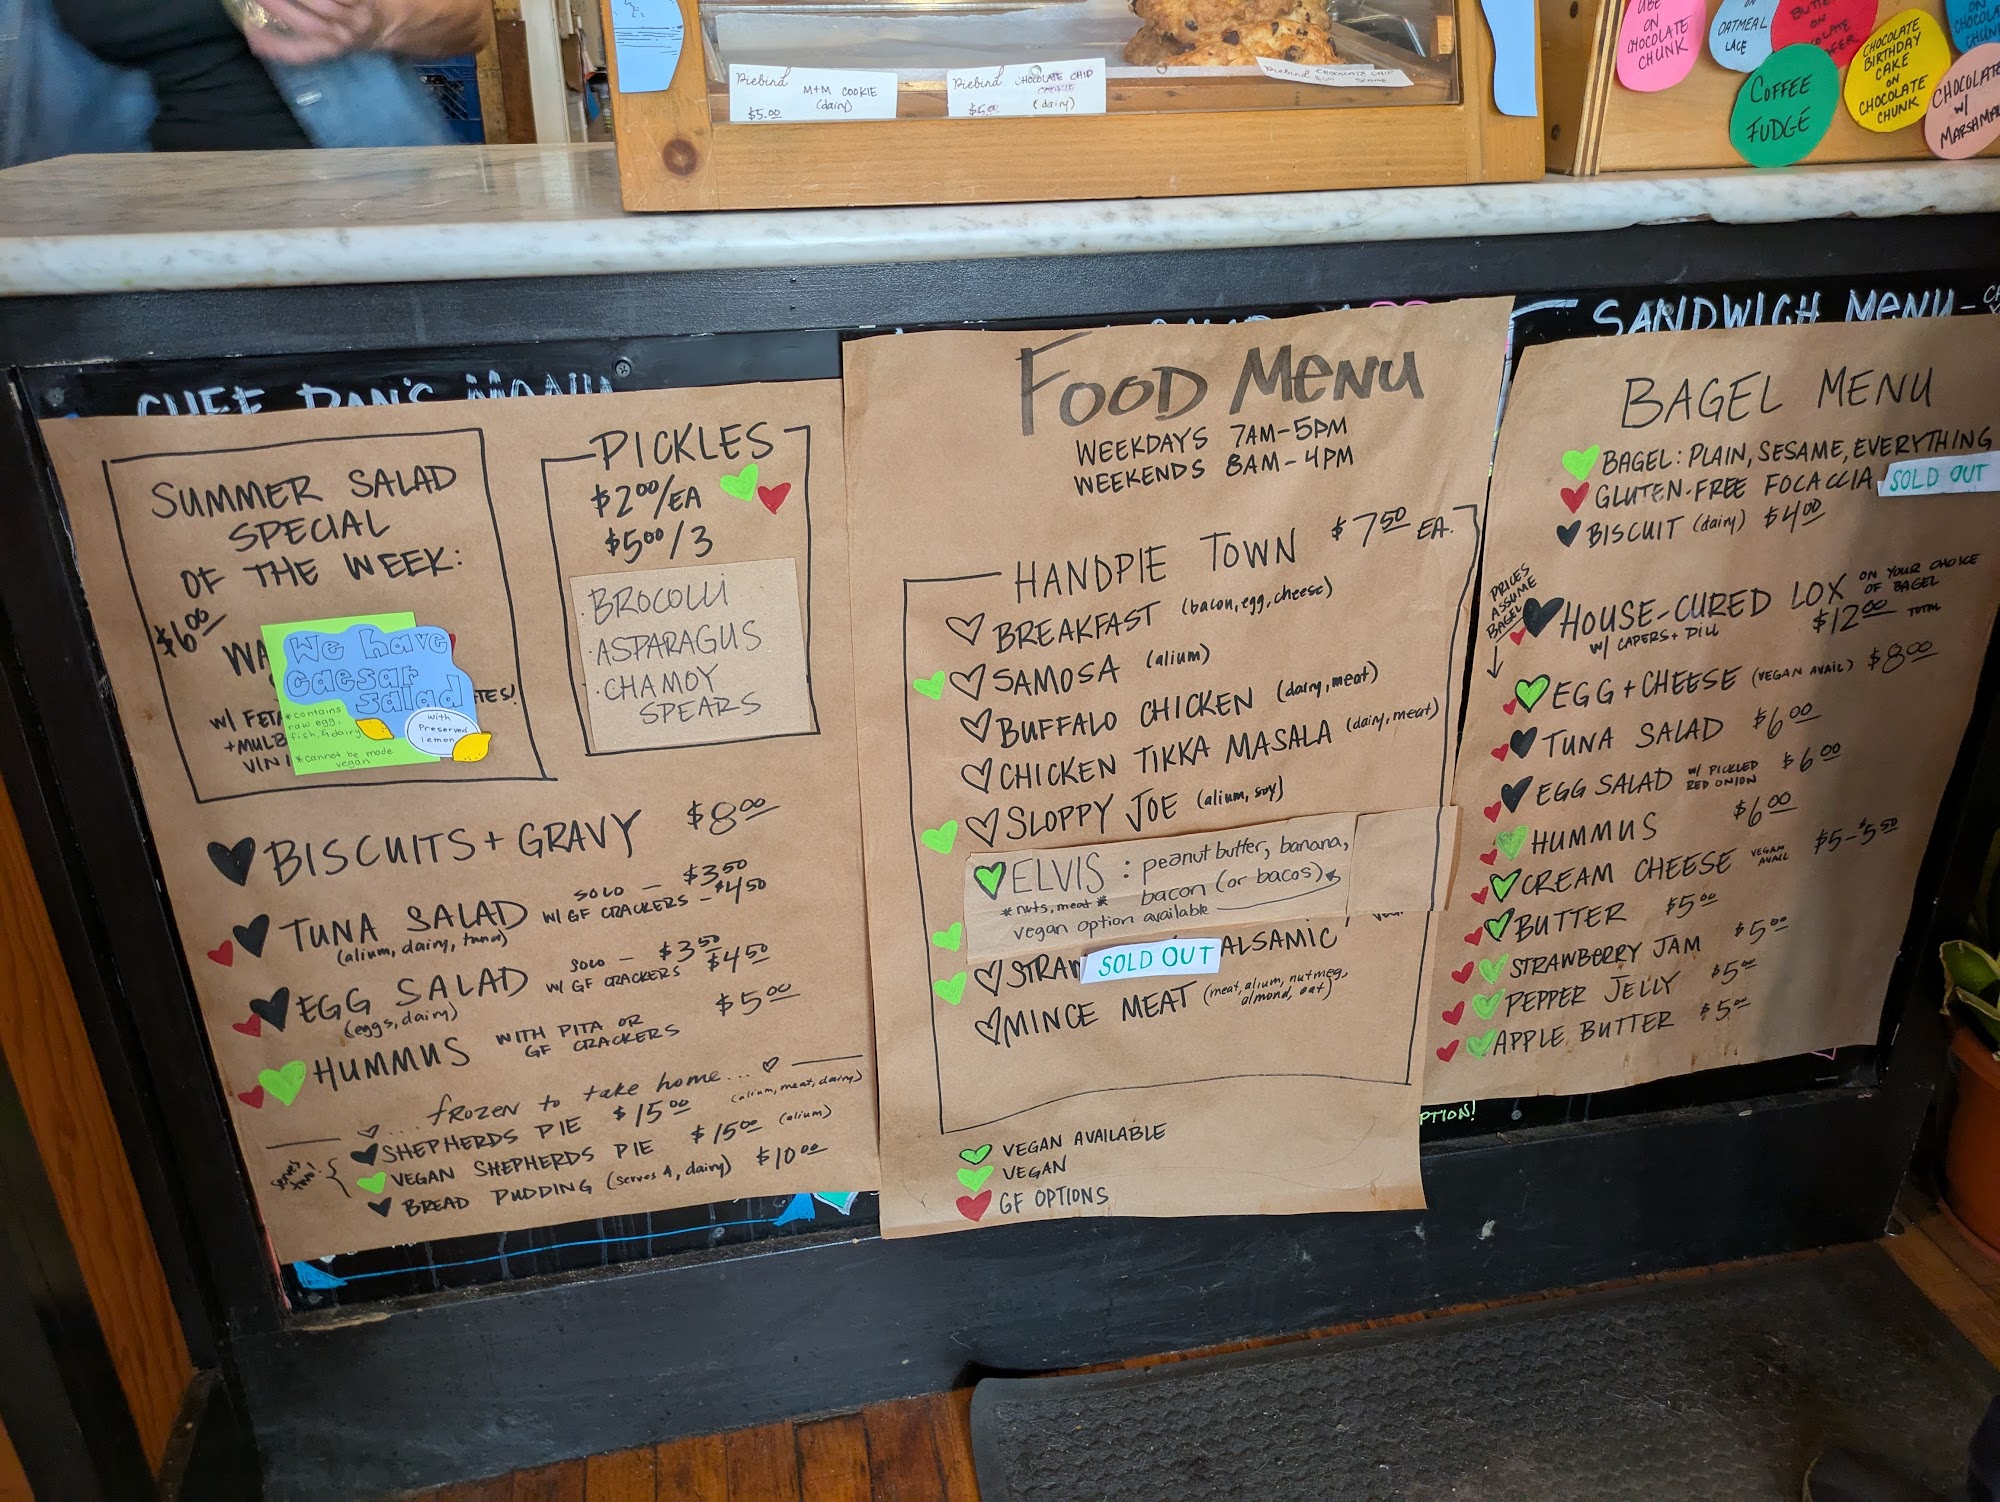 Piebird
M+M COOKIE
(dairy)
$5.00
Piebird
CHOCOLATE CHIP
COOKIE
(dairy)
Piebird CHOCOLATE CHIP
UBE
ON
CHOCOLATE
CHUNK
ON
OATMEAL
LACE
ON
COFFEE
FUDGE
CHOCOLATE
BIRTHDAY
CAKE
ON
CHOCOLATE
CHUNK
ON
CHOCOLATE
CHUNK
CHOCOLATE
W/
SANDWICH MENU
SUMMER SALAD
SPECIAL
OF THE WEEK:
$6.00
WA
We have
Caesar
salad
with
Preserved
lemon
*contains
raw egg,
fish, & dairy
*cannot be made
vegan
TES!
W/ FETA
+MULB
VIN
PICKLES
$2.00/EA
$5.00/3
·BROCOLLI
·ASPARAGUS
·CHAMOY
SPEARS
BISCUITS + GRAVY $8.00
TUNA SALAD SOLO - $3.50
W/ GF CRACKERS - $4.50
(alium, dairy, tuna)
EGG SALAD SOLO - $3.50
W/ GF CRACKERS $4.50
(eggs, dairy)
HUMMUS WITH PITA OR
GF CRACKERS $5.00
...frozen to take home...
SHEPHERDS PIE $15.00 (alium, meat, dairy)
VEGAN SHEPHERDS PIE $15.00 (alium)
BREAD PUDDING (serves 4, dairy) $10.00
serves
two!
FOOD MENU
WEEKDAYS 7AM-5PM
WEEKENDS 8AM-4PM
HANDPIE TOWN $7.50 EA.
BREAKFAST (bacon, egg, cheese)
SAMOSA (alium)
BUFFALO CHICKEN (dairy, meat)
CHICKEN TIKKA MASALA (dairy, meat)
SLOPPY JOE (alium, soy)
ELVIS: peanut butter, banana,
*nuts, meat* bacon (or bacos)
vegan option available
STRAW SOLD OUT ALSAMIC
MINCE MEAT (meat, alium, nutmeg,
almond, oat)
VEGAN AVAILABLE
VEGAN
GF OPTIONS
BAGEL MENU
BAGEL: PLAIN, SESAME, EVERYTHING
GLUTEN-FREE FOCACCIA SOLD OUT
BISCUIT (dairy) $4.00
PRICES
ASSUME
BAGEL
HOUSE-CURED LOX ON YOUR CHOICE
OF BAGEL
W/ CAPERS + DILL $12.00 TOTAL
EGG + CHEESE (VEGAN AVAIL) $8.00
TUNA SALAD $6.00
EGG SALAD W/ PICKLED
RED ONION $6.00
HUMMUS $6.00
CREAM CHEESE VEGAN
AVAIL $5-$5.50
BUTTER $5.00
STRAWBERRY JAM $5.00
PEPPER JELLY $5.00
APPLE BUTTER $5.00
PTION!